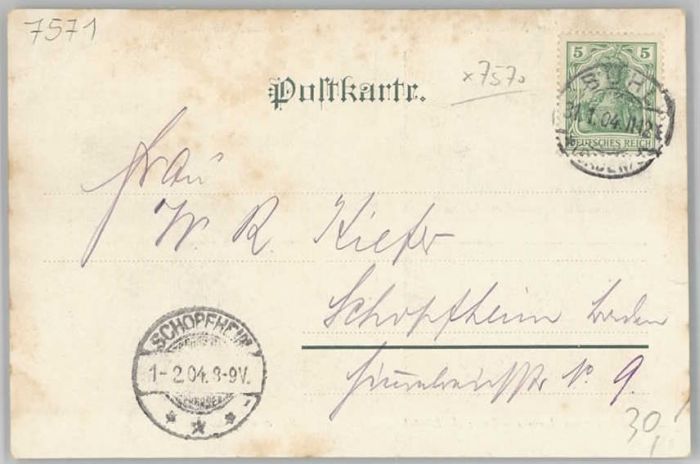 7571
x7570
Postkarte.
5 5
DEUTSCHES REICH
BÜHL
31.1.04.11-12
(BADEN)
Frau
W. R. Kiefer
Schopfheim Baden
N. 9.
SCHOPFHEIM
1-2.04.8-9V.
30,